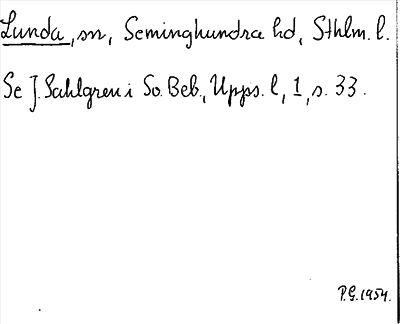 Lunda, sn, Seminghundra hd, Sthlm. l.
Se J. Sahlgren i So. Beb., Upps. l, 1, s. 33.
P.G. 1954.